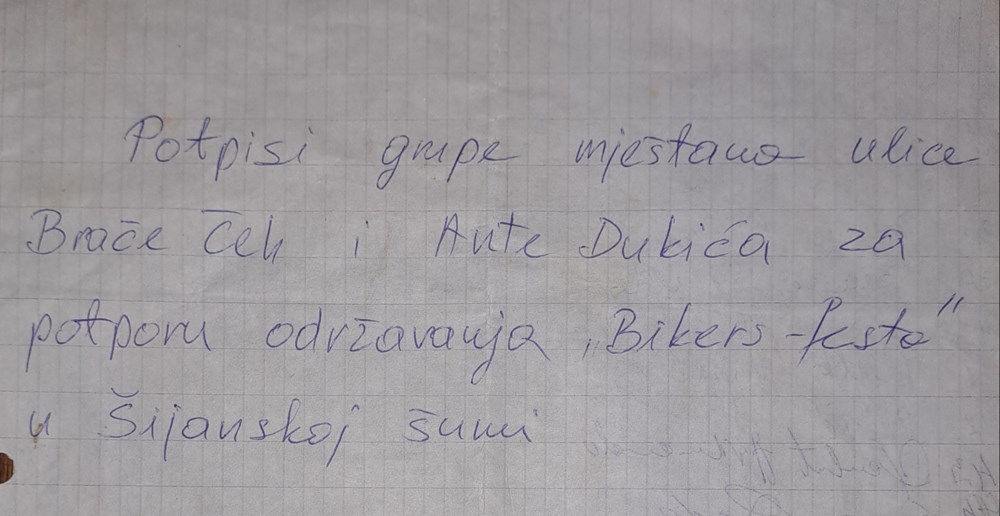 Potpisi grupe mještana ulice
Braće Čeh i Ante Dukića za
potporu održavanja „Bikers-festa"
u Šijanskoj šumi